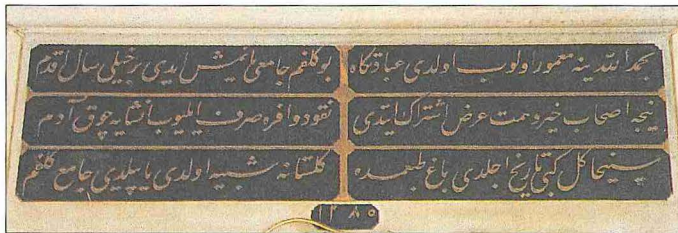 بحمد الله ينه معمور اولوب اولدى عبادتكاه
بو كلفم جامعى ايمش ايدى بر خيلى سال اقدم
نيجه اصحاب خير و همت عرض اشتراك ايتدى
نقود وافره صرف ايليوب انشايه چوق آدم
سنيحا كل كبى تاريخ اچلدى باغ طبعمده
كلستانه شبيه اولدى ياپلدى جامع كلفم
١٢٨٥